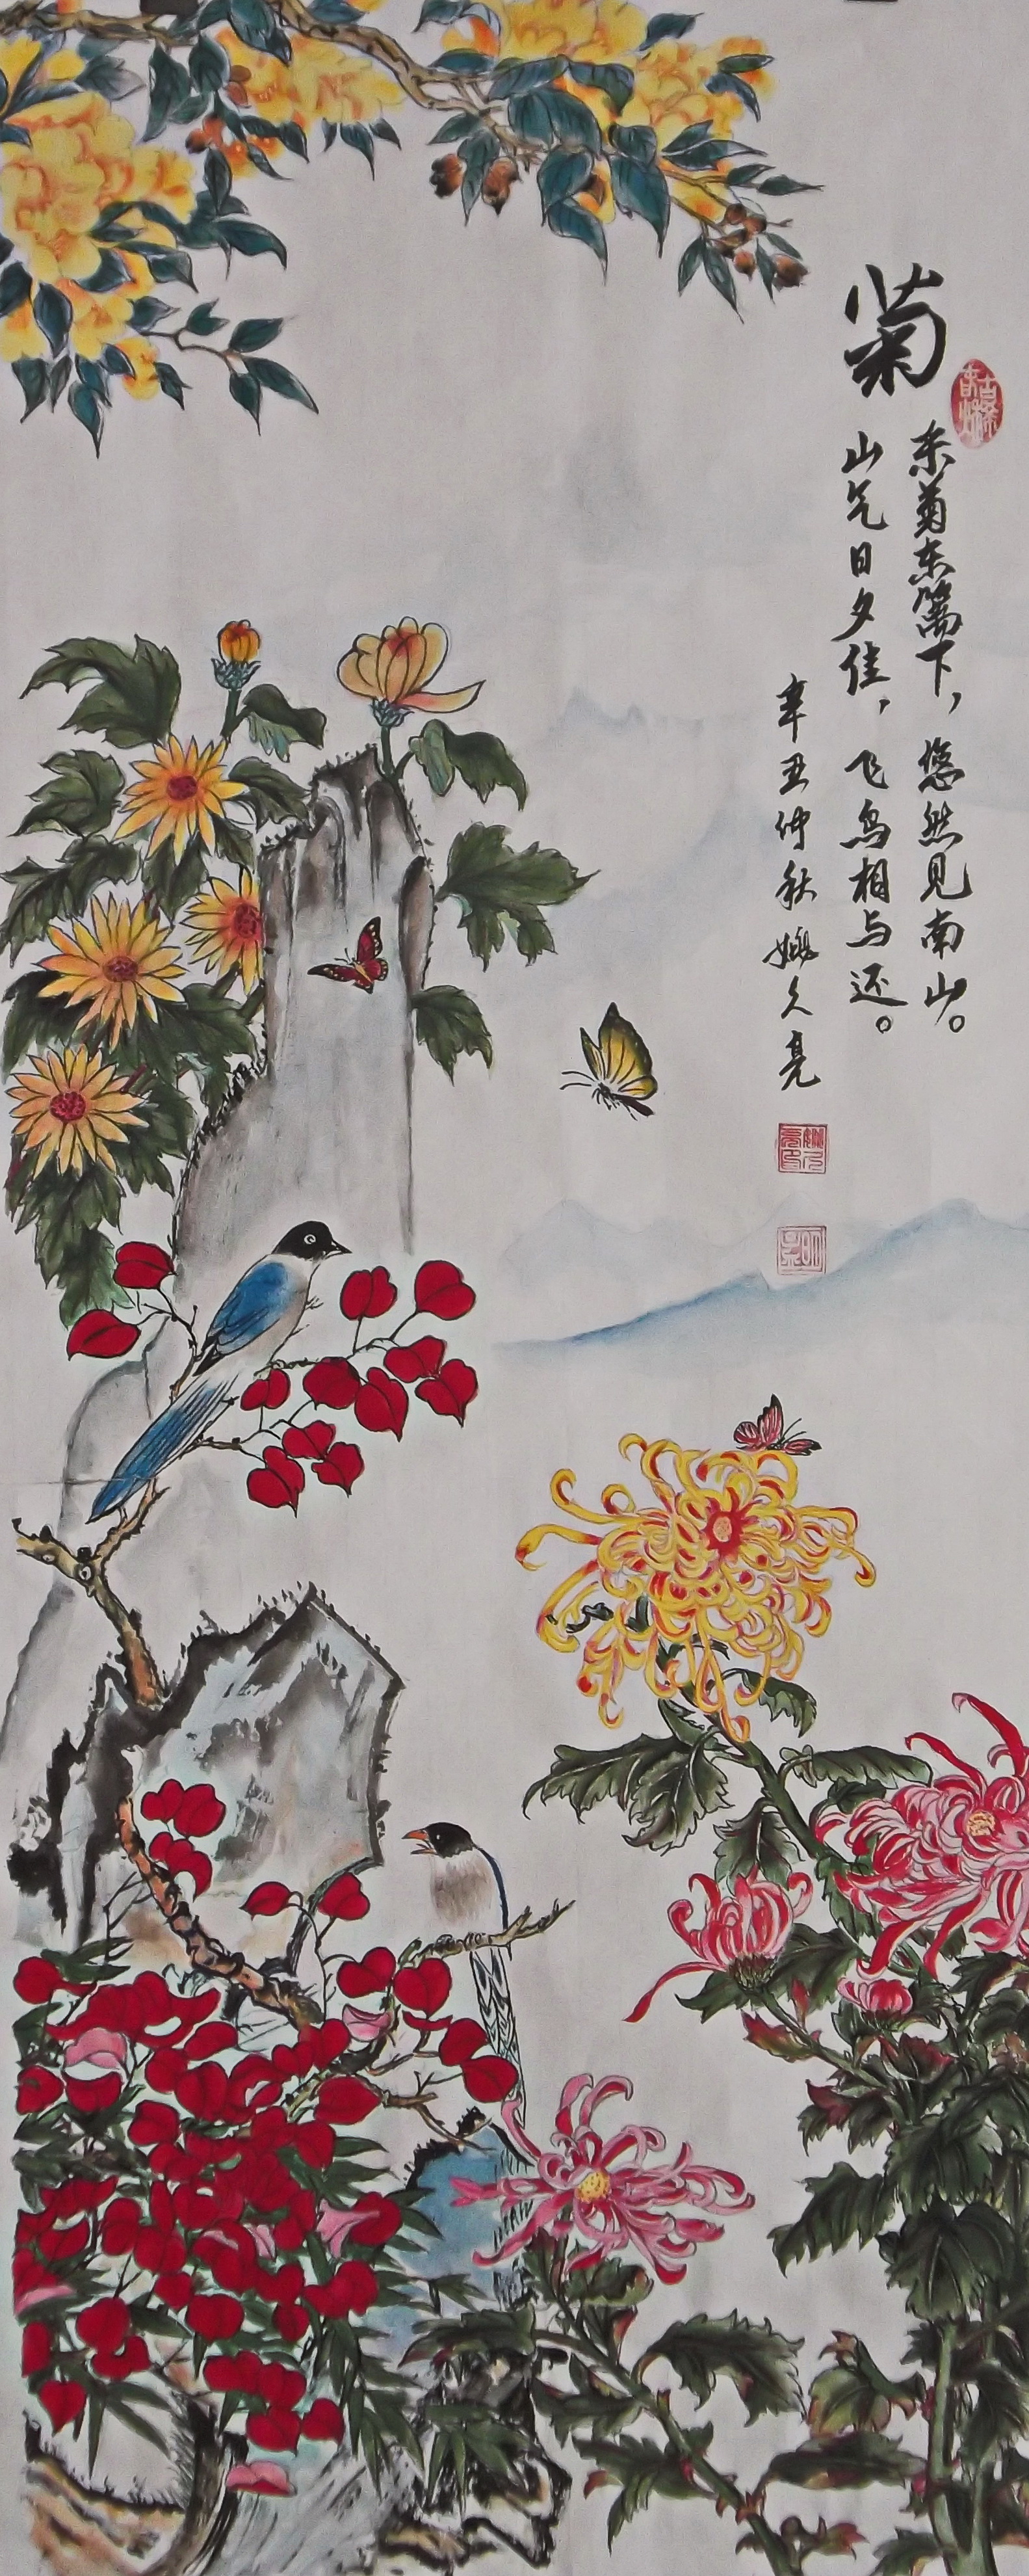 菊
采菊东篱下，悠然见南山。
山气日夕佳，飞鸟相与还。
辛丑仲秋 久亮